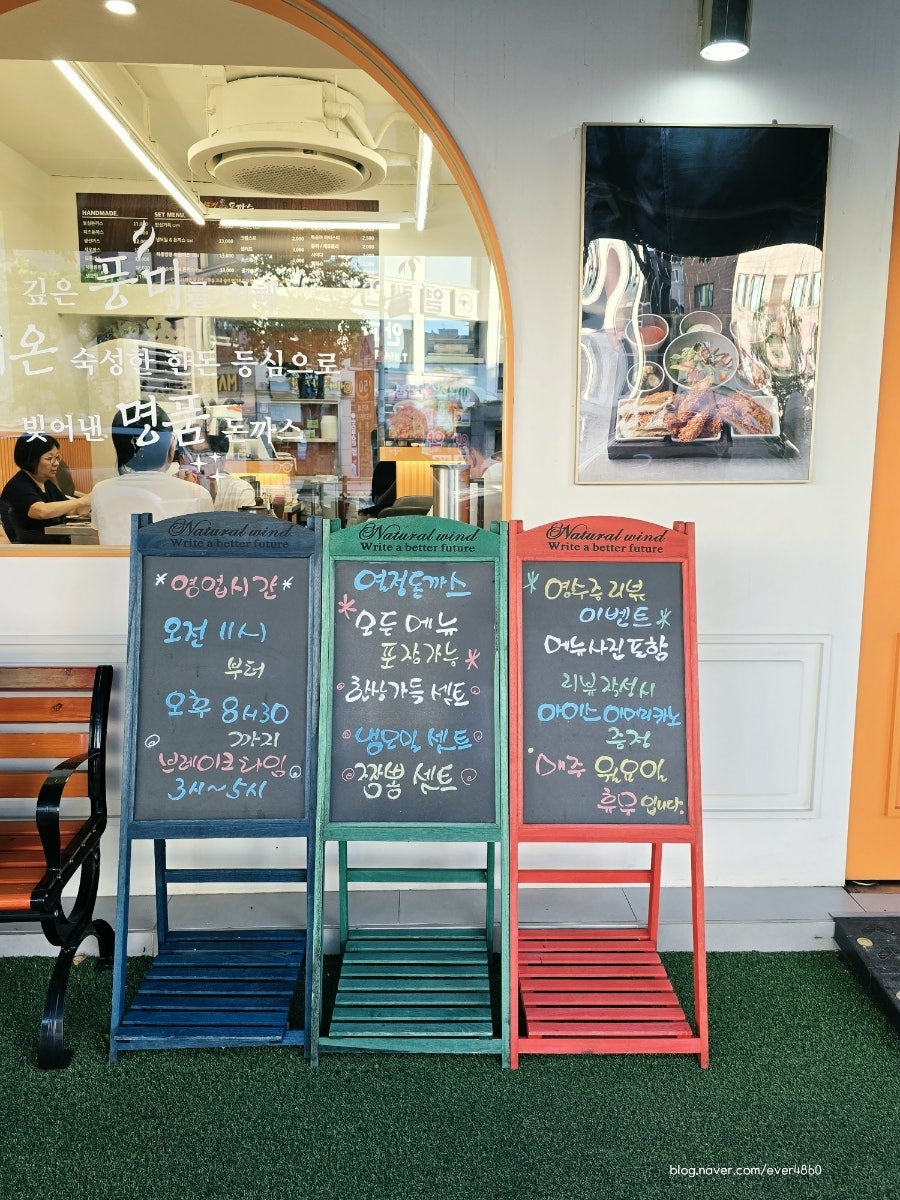 HANDMADE.
SET MENU.
깊은 풍미
온 숙성한 한돈 등심으로
빚어낸 명품 돈까스
Natural wind
Write a better future
*영업시간*
오전 11시
부터
오후 8시30
까지
브레이크타임
3시~5시
Natural wind
Write a better future
열정돈까스
*모든 메뉴
포장가능*
한상가득 셋트
냉모밀 셋트
짬뽕 셋트
Natural wind
Write a better future
*영수증 리뷰
이벤트*
메뉴사진포함
리뷰작성시
아이스아메리카노
증정
매주 월요일
휴무입니다.
blog.naver.com/ever4860